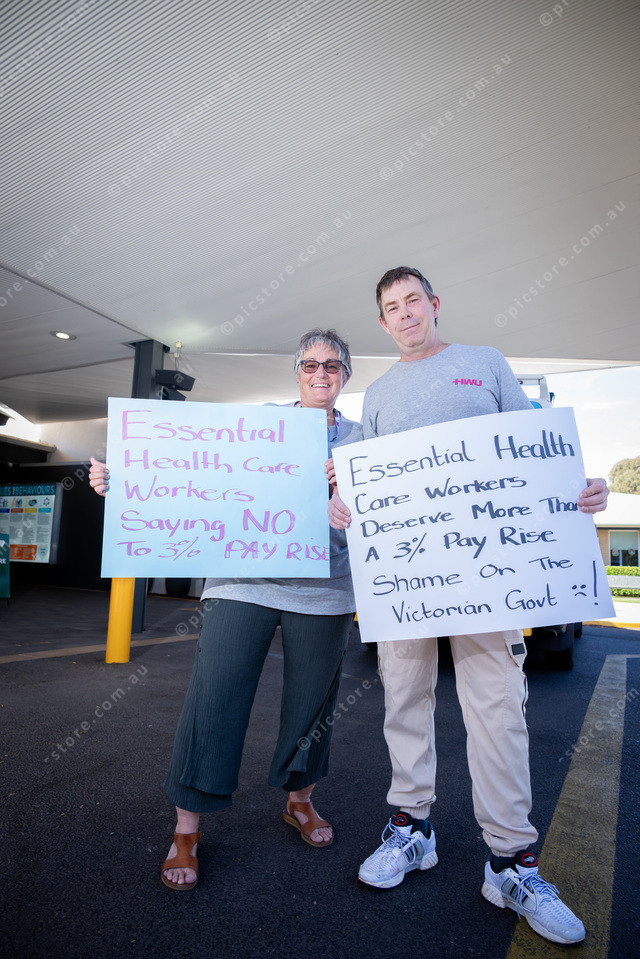 Essential
Health Care
Workers
Saying NO
To 3% PAY RISE
HWU
Essential Health
Care Workers
Deserve More Than
A 3% Pay Rise
Shame On The
Victorian Govt !
BEHAVIOURS
© picstore.com.au